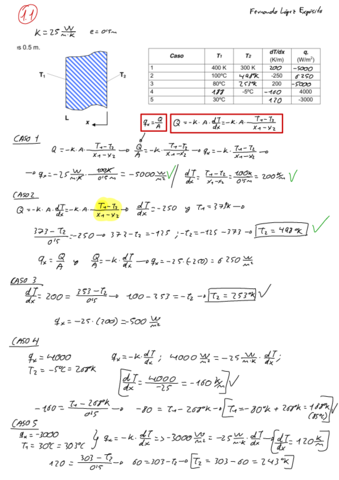 1.1
Fernando López Expósito
K=25 W/m·K e=0'5m
is 0.5 m.
T₁ T₂
L x
Caso T₁ T₂ dT/dx (K/m) qₓ (W/m²)
1 400 K 300 K 200 -5000
2 100°C 498K -250 6250
3 80°C 253K 200 -5000
4 188 -5°C -160 4000
5 30°C 120 -3000
qₓ=Q/A Q=-K·A·dT/dx=-K·A·T₁-T₂/x₁-x₂
CASO 1
Q=-K·A·T₁-T₂/x₁-x₂ → Q/A=-K·T₁-T₂/x₁-x₂ → qₓ=-K·T₁-T₂/x₁-x₂ →
→ qₓ=-25 W/m·K·100K/0'5m=-5000 W/m² ✓ dT/dx=T₁-T₂/x₁-x₂=100K/0'5m=200K/m ✓
CASO 2
Q=-K·A·dT/dx=-K·A·T₁-T₂/x₁-x₂ → dT/dx=-250 y T₁=373K →
373-T₂/0'5=-250 → 373-T₂=-125; -T₂=-125-373 → T₂=498K ✓
qₓ=Q/A y Q/A=-K·dT/dx → qₓ=-25·(-250)=6250 W/m²
CASO 3
dT/dx=200=353-T₂/0'5 → 100-353=-T₂ → T₂=253K ✓
qₓ=-25·(200)=-500 W/m²
CASO 4
qₓ=4000 qₓ=-K·dT/dx; 4000 W/m²=-25 W/m·K·dT/dx;
T₂=-5°C=268K
dT/dx=4000/-25=-160 K/m ✓
-160=T₁-268K/0'5 → -80=T₁-268K → T₁=-80K+268K=188K ✓
CASO 5
qₓ=-3000
T₁=30°C=303K } qₓ=-K·dT/dx => -3000 W/m²=-25 W/m·K·dT/dx → dT/dx=120 K/m
120=303-T₂/0'5 → 60=303-T₂ → T₂=303-60=243K ✓